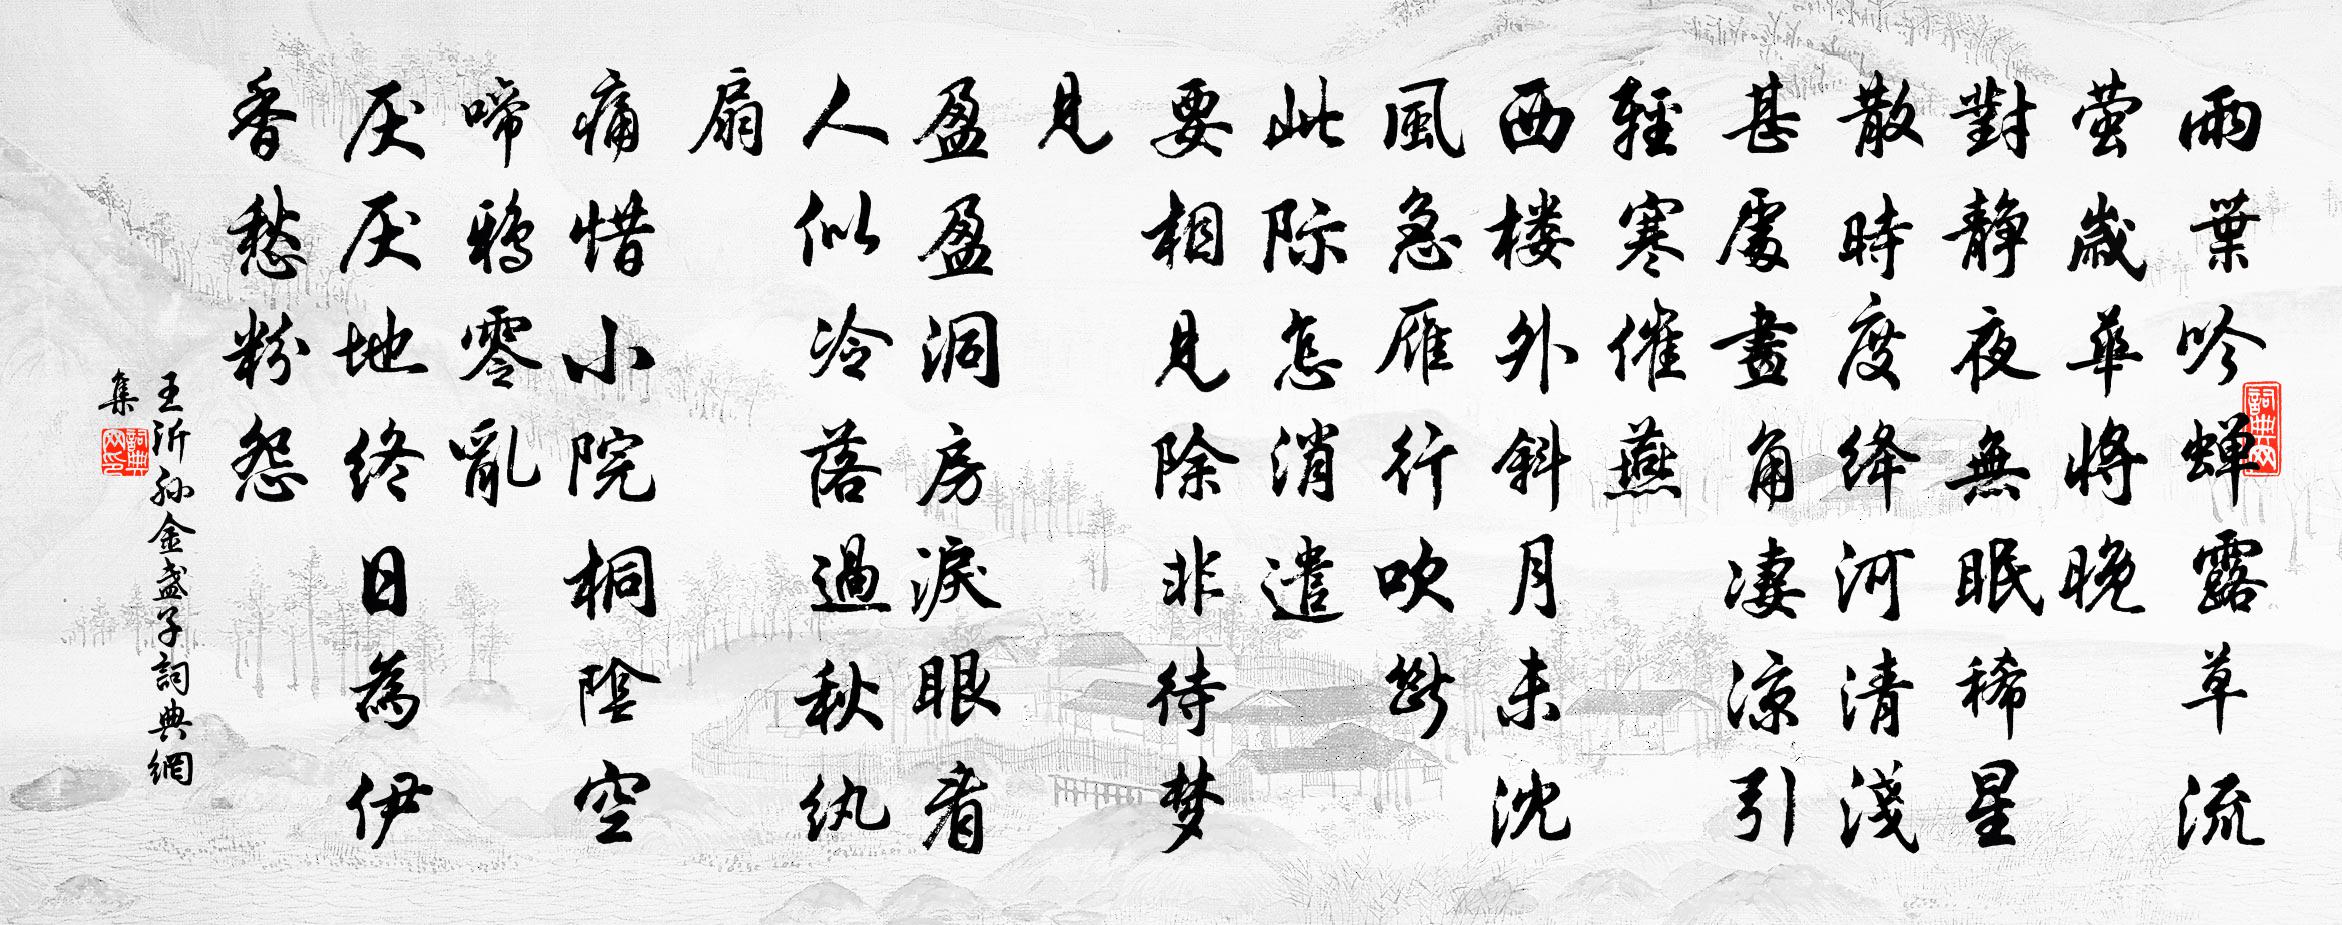 雨葉吟蝉露草流
萤歲華将晚
對靜夜無眠稀星
散時度绛河清淺
甚處畫角凄涼引
輕寒催燕
西楼外斜月未沈
風急雁行吹斷
此际怎消遣
要相見除非待梦
見
盈盈洞房淚眼看
人似冷落過秋纨
扇
痛惜小院桐陰空
啼鴉零亂
厌厌地终日為伊
香愁粉怨
王沂孙金盏子詞典網
集
詞典网
詞典网印